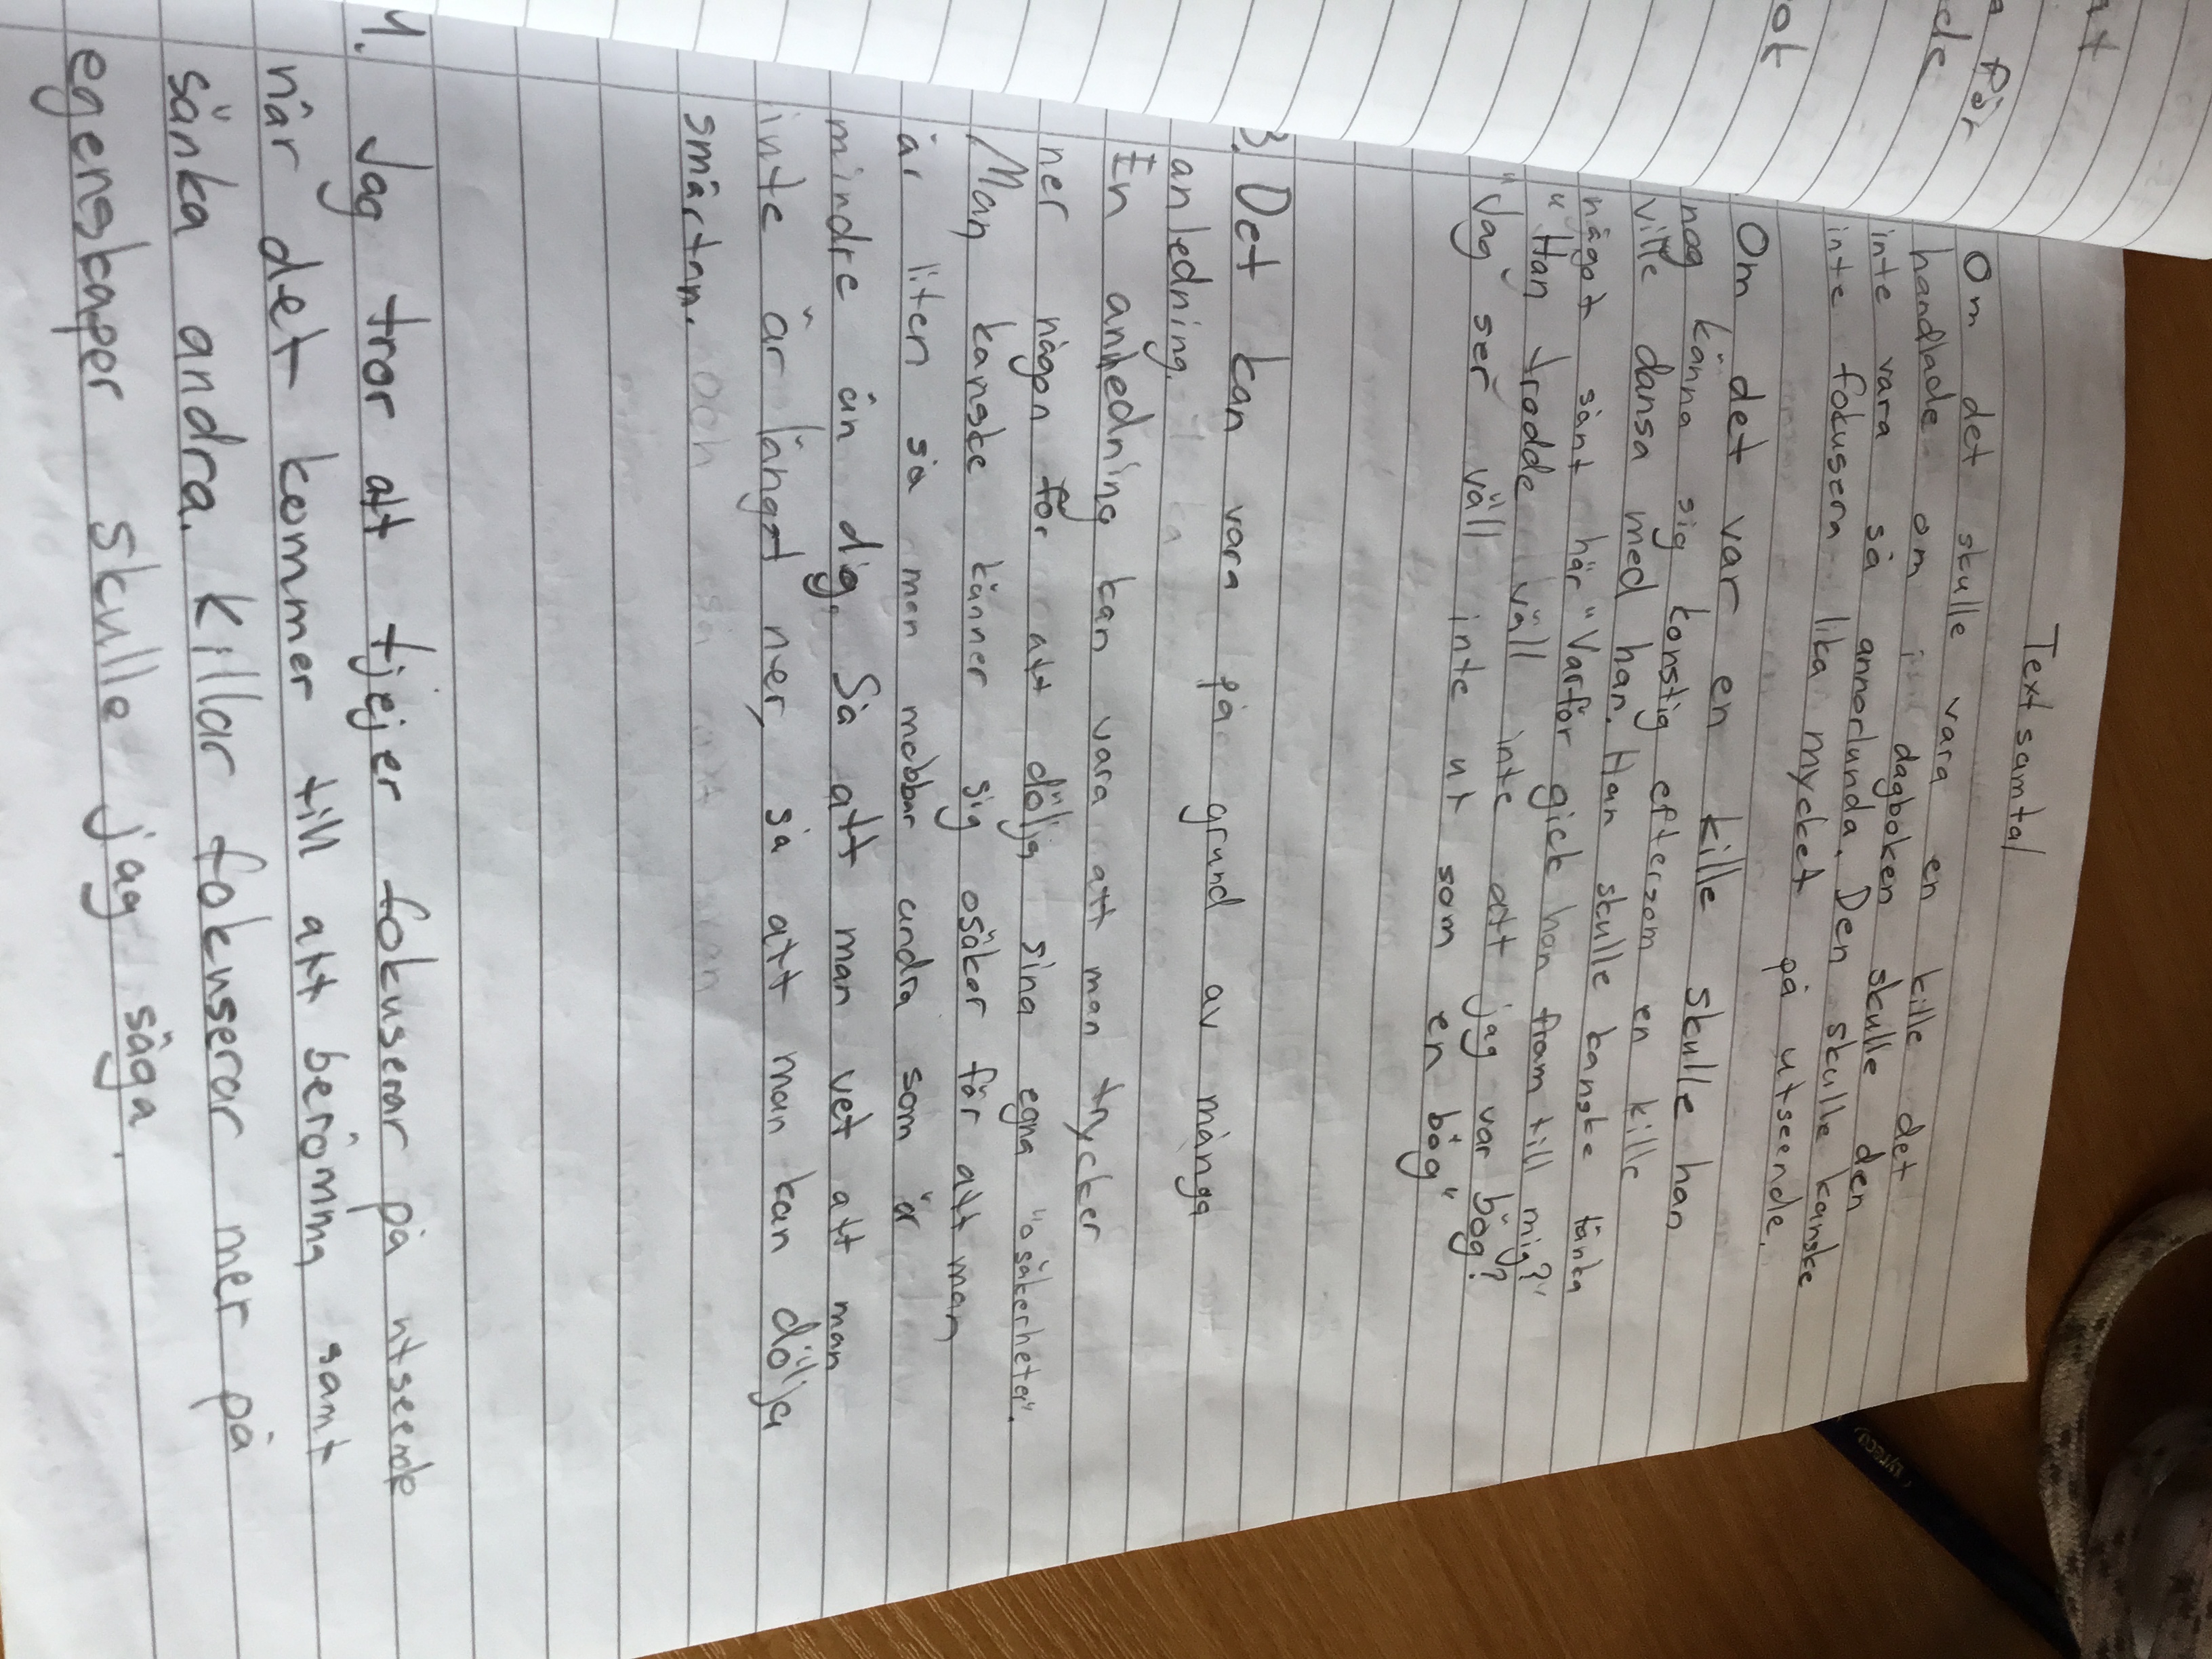 Textsamtal
Om det skulle vara en kille det
handlade om i dagboken skulle den
inte vara så annorlunda. Den skulle kanske
inte fokusera lika mycket på utseende.
Om det var en kille skulle han
nog känna sig konstig eftersom en kille
ville dansa med han. Han skulle kanske tänka
något sånt här "Varför gick han fram till mig?"
"Han trodde väll inte att jag var bög?
"Jag ser väll inte ut som en bög"
3. Det kan vara på grund av många
anledning.
En anledning kan vara att man trycker
ner någon för att dölja sina egna "osäkerheter".
Man kanske känner sig osäker för att man
är liten så man mobbar andra som är
mindre än dig. Så att man vet att man
inte är längst ner, så att man kan dölja
smärtan.
4. Jag tror att tjejer fokuserar på utseende
när det kommer till att berömma samt
sänka andra. Killar fokuserar mer på
egenskaper skulle jag säga.
för